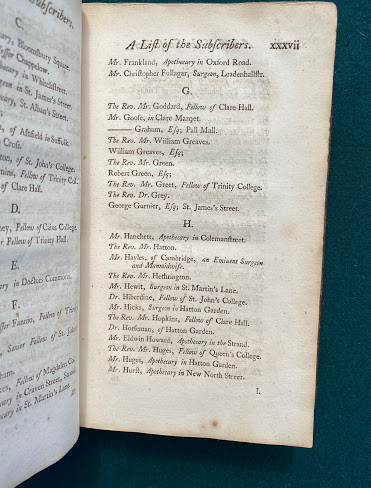 Subscribers.
C.
Bloomsbury Square.
Chappelow.
in Whitchstreet.
in St. James's Street.
St. Alban's Street.
of Ashfield in Suffolk.
Cross.
of St. John's College.
Fellow of Trinity Col.
of Clare Hall.
D.
Fellow of Caius College.
Fellow of Trinity Hall.
E.
in Doctors Commons.
F.
Fellow of Trinity
Senior Fellow of St. John's
Fellow of Magdalen Col.
in Craven Street, Strand.
in St. Martin's Lane.
A List of the Subscribers. xxxvii
Mr. Frankland, Apothecary in Oxford Road.
Mr. Christopher Fullagar, Surgeon, Leadenhallstr.
G.
The Rev. Mr. Goddard, Fellow of Clare Hall.
Mr. Goose, in Clare Marqet.
—— Graham, Esq; Pall Mall.
The Rev. Mr. William Greaves.
William Greaves, Esq;
The Rev. Mr. Green.
Robert Green, Esq;
The Rev. Mr. Greet, Fellow of Trinity College.
The Rev. Dr. Grey.
George Gurnier, Esq; St. James's Street.
H.
Mr. Hanchett, Apothecary in Colemanstreet.
The Rev. Mr. Hatton.
Mr. Hayles, of Cambridge, an Eminent Surgeon
and Manmidwife.
The Rev. Mr. Hethrington.
Mr. Hewit, Surgeon in St. Martin's Lane.
Dr. Hiberdine, Fellow of St. John's College.
Mr. Hicks, Surgeon in Hatton Garden.
The Rev. Mr. Hopkins, Fellow of Clare Hall.
Dr. Horseman, of Hatton Garden.
Mr. Eldwin Howard, Apothecary in the Strand.
The Rev. Mr. Huges, Fellow of Queen's College.
Mr. Huges, Apothecary in Hatton Garden.
Mr. Hurst, Apothecary in New North Street.
I.